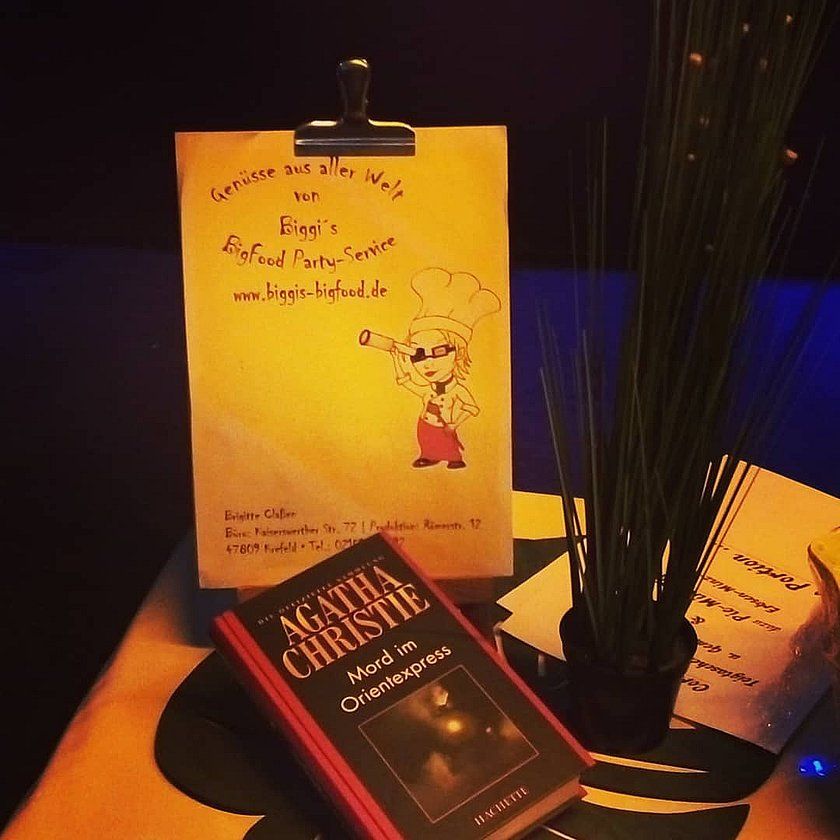 Genüsse aus aller Welt
von
Biggi´s
BigFood Party-Service
www.biggis-bigfood.de
Brigitte Claßen
Büro: Kaiserswerther Str. 72 | Produktion: Römerstr. 12
47809 Krefeld • Tel.:
DIE OFFIZIELLE SAMMLUNG
AGATHA
CHRISTIE
Mord im
Orientexpress
HACHETTE
Portion
&